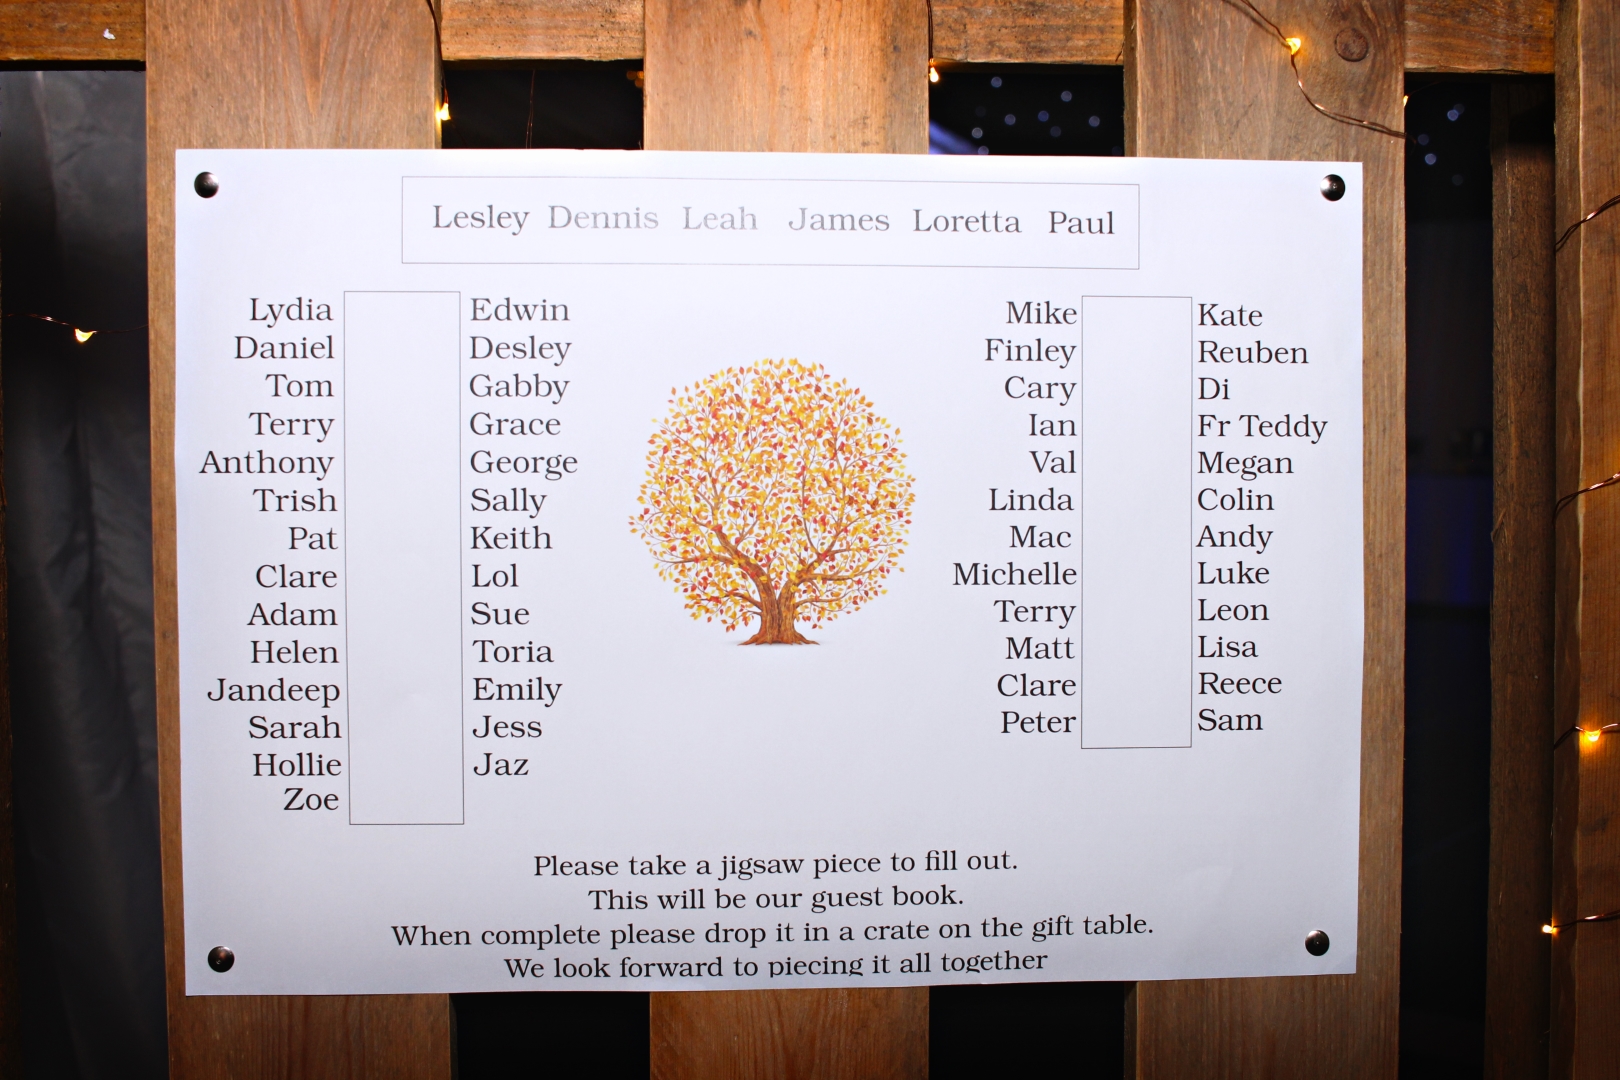 Lesley Dennis Leah James Loretta Paul
Lydia
Daniel
Tom
Terry
Anthony
Trish
Pat
Clare
Adam
Helen
Jandeep
Sarah
Hollie
Zoe
Edwin
Desley
Gabby
Grace
George
Sally
Keith
Lol
Sue
Toria
Emily
Jess
Jaz
Mike
Finley
Cary
Ian
Val
Linda
Mac
Michelle
Terry
Matt
Clare
Peter
Kate
Reuben
Di
Fr Teddy
Megan
Colin
Andy
Luke
Leon
Lisa
Reece
Sam
Please take a jigsaw piece to fill out.
This will be our guest book.
When complete please drop it in a crate on the gift table.
We look forward to piecing it all together